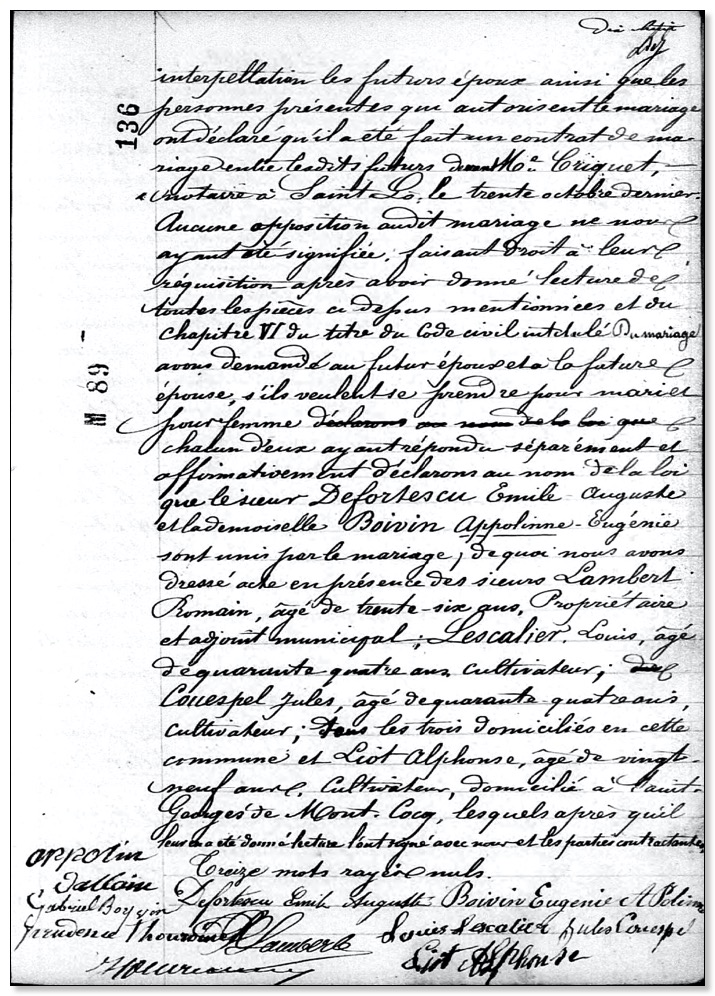 136
M 89
interpellation les futurs époux ainsi que les
personnes présentes qui autorisent le mariage
ont déclaré qu'il a été fait un contrat de ma-
riage entre lesdits futurs devant Me Criquet,
notaire à Saint-Lô, le trente octobre dernier.
Aucune opposition audit mariage ne nous
ayant été signifiée, faisant droit à leur
réquisition après avoir donné lecture de
toutes les pièces ci dessus mentionnées et du
chapitre VI du titre du Code civil intitulé Du mariage
avons demandé au futur époux et à la future
épouse, s'ils veulent se prendre pour mari et
pour femme déclarons au nom de la loi que
chacun d'eux ayant répondu séparément et
affirmativement déclarons au nom de la loi
que le sieur Defortescu Emile Auguste
et la demoiselle Boivin Appolinne-Eugénie
sont unis par le mariage, de quoi nous avons
dressé acte en présence des sieurs Lambert
Romain, âgé de trente-six ans, Propriétaire
et adjoint municipal; Lescalier, Louis, âgé
de quarante quatre ans cultivateur;
Couespel Jules, âgé de quarante-quatre ans,
cultivateur; tous les trois domiciliés en cette
commune et Liot Alphonse, âgé de vingt-
neuf ans, cultivateur, domicilié à Saint-
Georges de Mont-Cocq, lesquels après qu'il
leur en a été donné lecture l'ont signé avec nous et les parties contractantes,
Treize mots rayés nuls.
appolin
Dallain
Defortescu Emile Auguste Boivin Eugénie APolinne
Gabriel Boivin
prudence Lambert Louis Lescalier Jules Couespel
Liot Alphonse